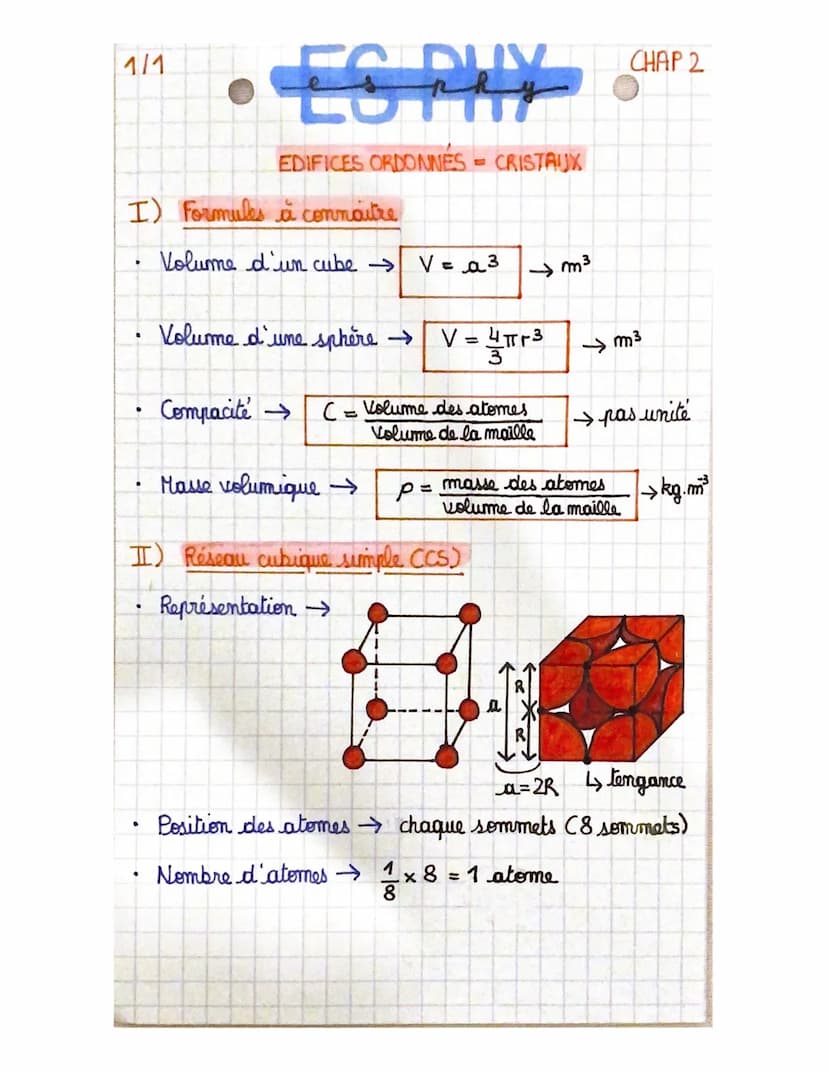 1/1
ES PHY
es phy
CHAP 2
EDIFICES ORDONNÉS = CRISTAUX
I) Formules à connaitre
• Volume d'un cube → V = a³ → m³
• Volume d'une sphère → V = 4/3 πr³ → m³
• Compacité → C = Volume des atomes / Volume de la maille → pas unité
• Masse volumique → ρ = masse des atomes / volume de la maille → kg.m⁻³
II) Réseau cubique simple (CS)
• Représentation →
a
R
R
a=2R
↳ tengance
• Position des atomes → chaque sommets (8 sommets)
• Nombre d'atomes → 1/8 × 8 = 1 atome